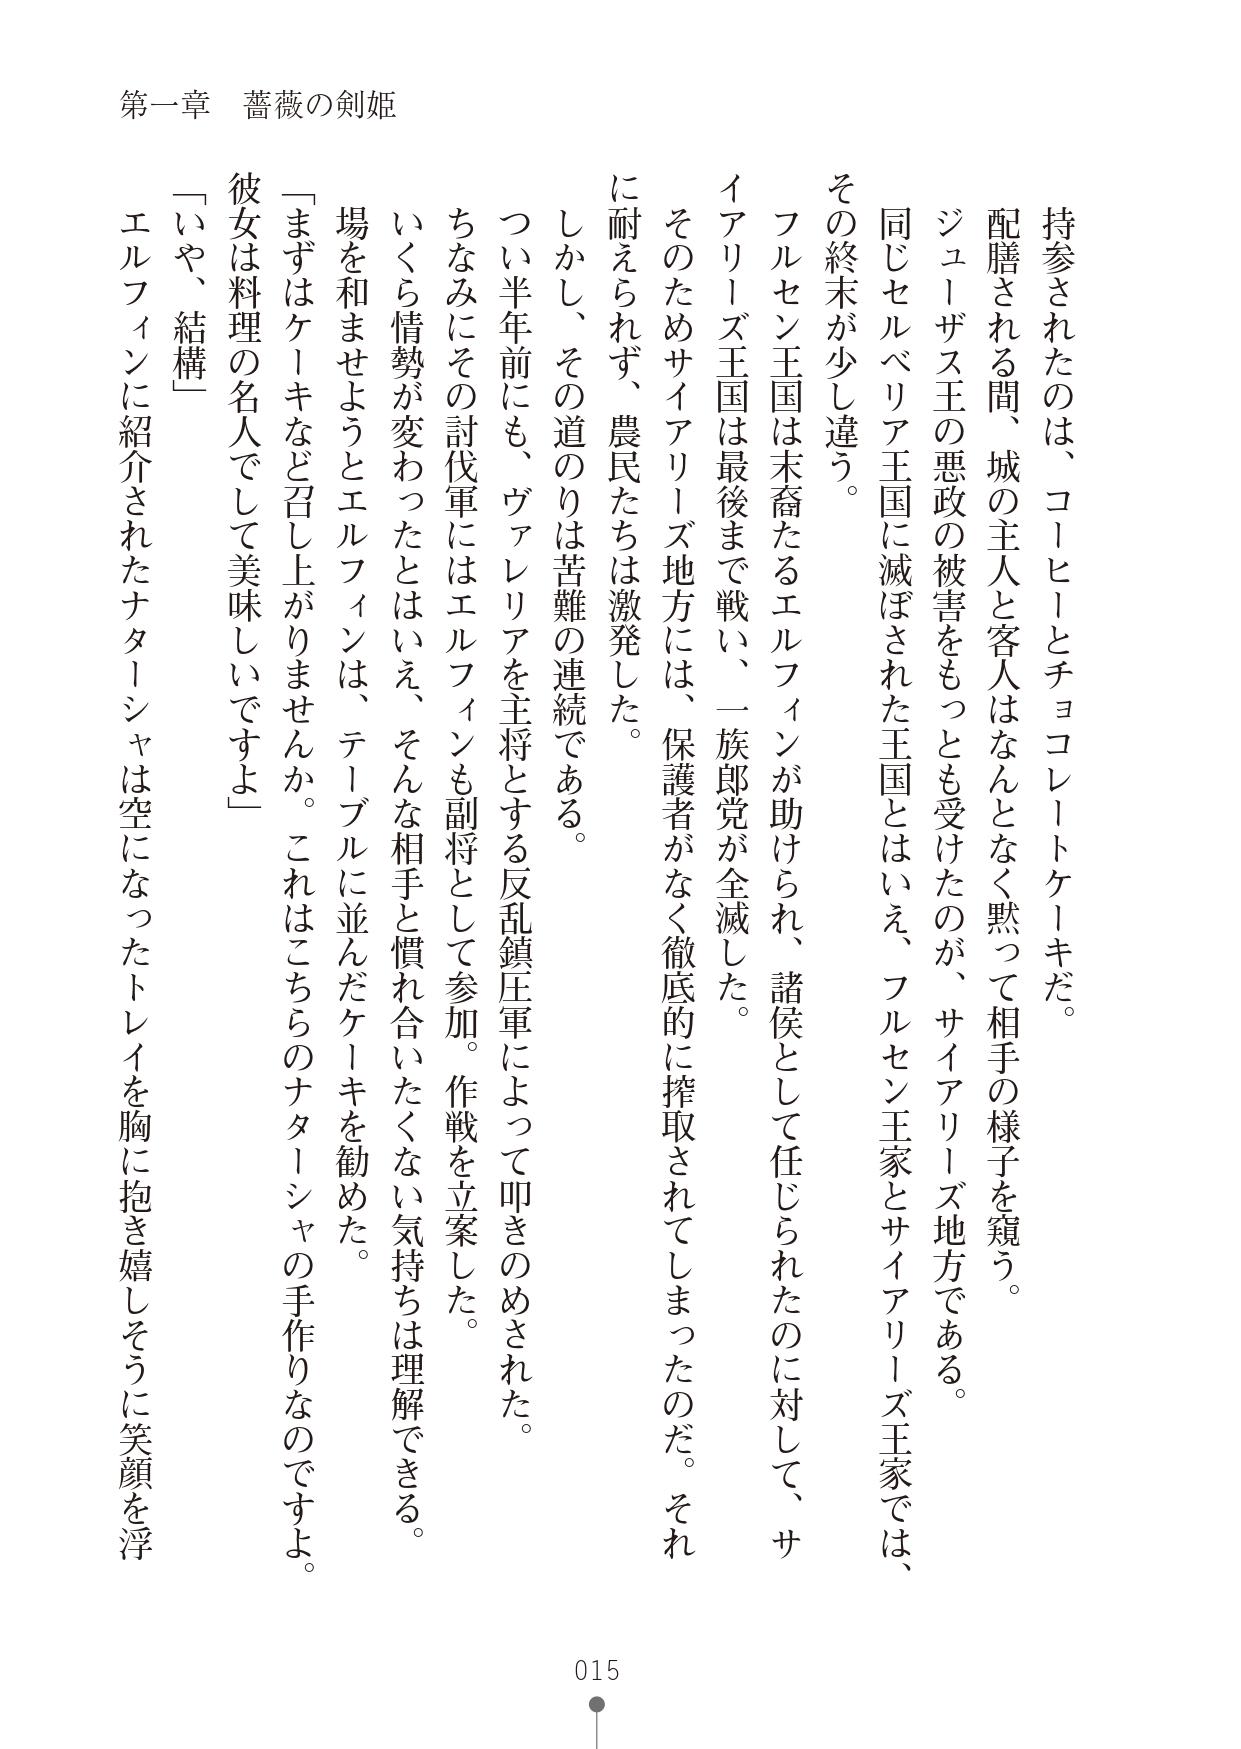 第一章　薔薇の剣姫
　持参されたのは、コーヒーとチョコレートケーキだ。
　配膳される間、城の主人と客人はなんとなく黙って相手の様子を窺う。
　ジューザス王の悪政の被害をもっとも受けたのが、サイアリーズ地方である。
　同じセルベリア王国に滅ぼされた王国とはいえ、フルセン王家とサイアリーズ王家では、
その終末が少し違う。
　フルセン王国は末裔たるエルフィンが助けられ、諸侯として任じられたのに対して、サ
イアリーズ王国は最後まで戦い、一族郎党が全滅した。
　そのためサイアリーズ地方には、保護者がなく徹底的に搾取されてしまったのだ。それ
に耐えられず、農民たちは激発した。
　しかし、その道のりは苦難の連続である。
　つい半年前にも、ヴァレリアを主将とする反乱鎮圧軍によって叩きのめされた。
　ちなみにその討伐軍にはエルフィンも副将として参加。作戦を立案した。
　いくら情勢が変わったとはいえ、そんな相手と慣れ合いたくない気持ちは理解できる。
　場を和ませようとエルフィンは、テーブルに並んだケーキを勧めた。
「まずはケーキなど召し上がりませんか。これはこちらのナターシャの手作りなのですよ。
彼女は料理の名人でして美味しいですよ」
「いや、結構」
　エルフィンに紹介されたナターシャは空になったトレイを胸に抱き嬉しそうに笑顔を浮
015